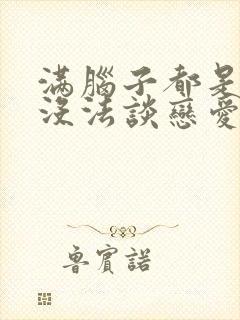 滿腦子都是
沒法談戀愛
魯賓諾